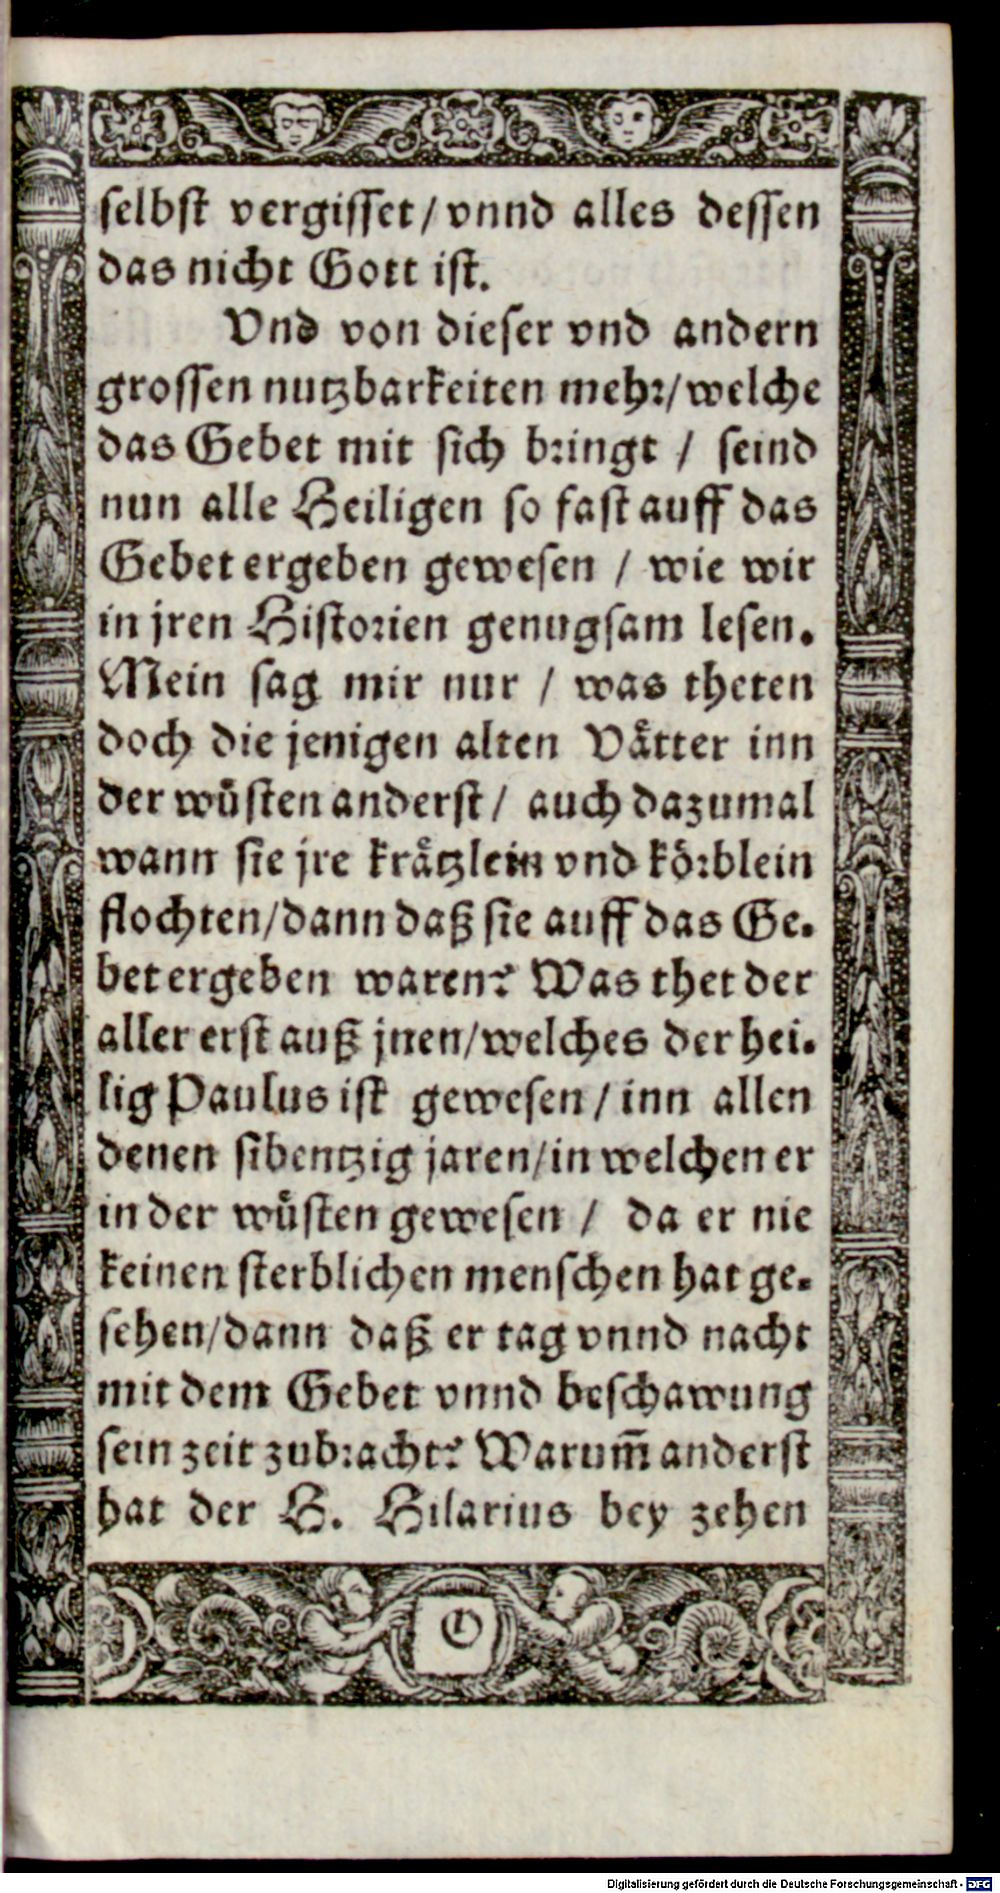 selbst vergisset / vnnd alles dessen
das nicht Gott ist.
Vnd von dieser vnd andern
grossen nutzbarkeiten mehr / welche
das Gebet mit sich bringt / seind
nun alle Heiligen so fast auff das
Gebet ergeben gewesen / wie wir
in jren Historien genugsam lesen.
Mein sag mir nur / was theten
doch die jenigen alten Vätter inn
der wüsten anderst / auch dazumal
wann sie jre krätzlein vnd körblein
flochten / dann daß sie auff das Ge-
bet ergeben waren? Was thet der
aller erst auß jnen / welches der hei-
lig Paulus ist gewesen / inn allen
denen sibentzig jaren / in welchen er
in der wüsten gewesen / da er nie
keinen sterblichen menschen hat ge-
sehen / dann daß er tag vnnd nacht
mit dem Gebet vnnd beschawung
sein zeit zubracht? Warum̃ anderst
hat der H. Hilarius bey zehen
O
Digitalisierung gefördert durch die Deutsche Forschungsgemeinschaft - DFG